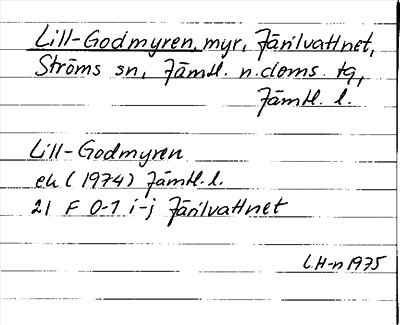 Lill-Godmyren, myr, Järilvattnet,
Ströms sn, Jämtl. n. doms. tg,
Jämtl. l.
Lill-Godmyren
ek (1974) Jämtl. l.
21 F 0-1 i-j Järilvattnet
L.H-n 1975